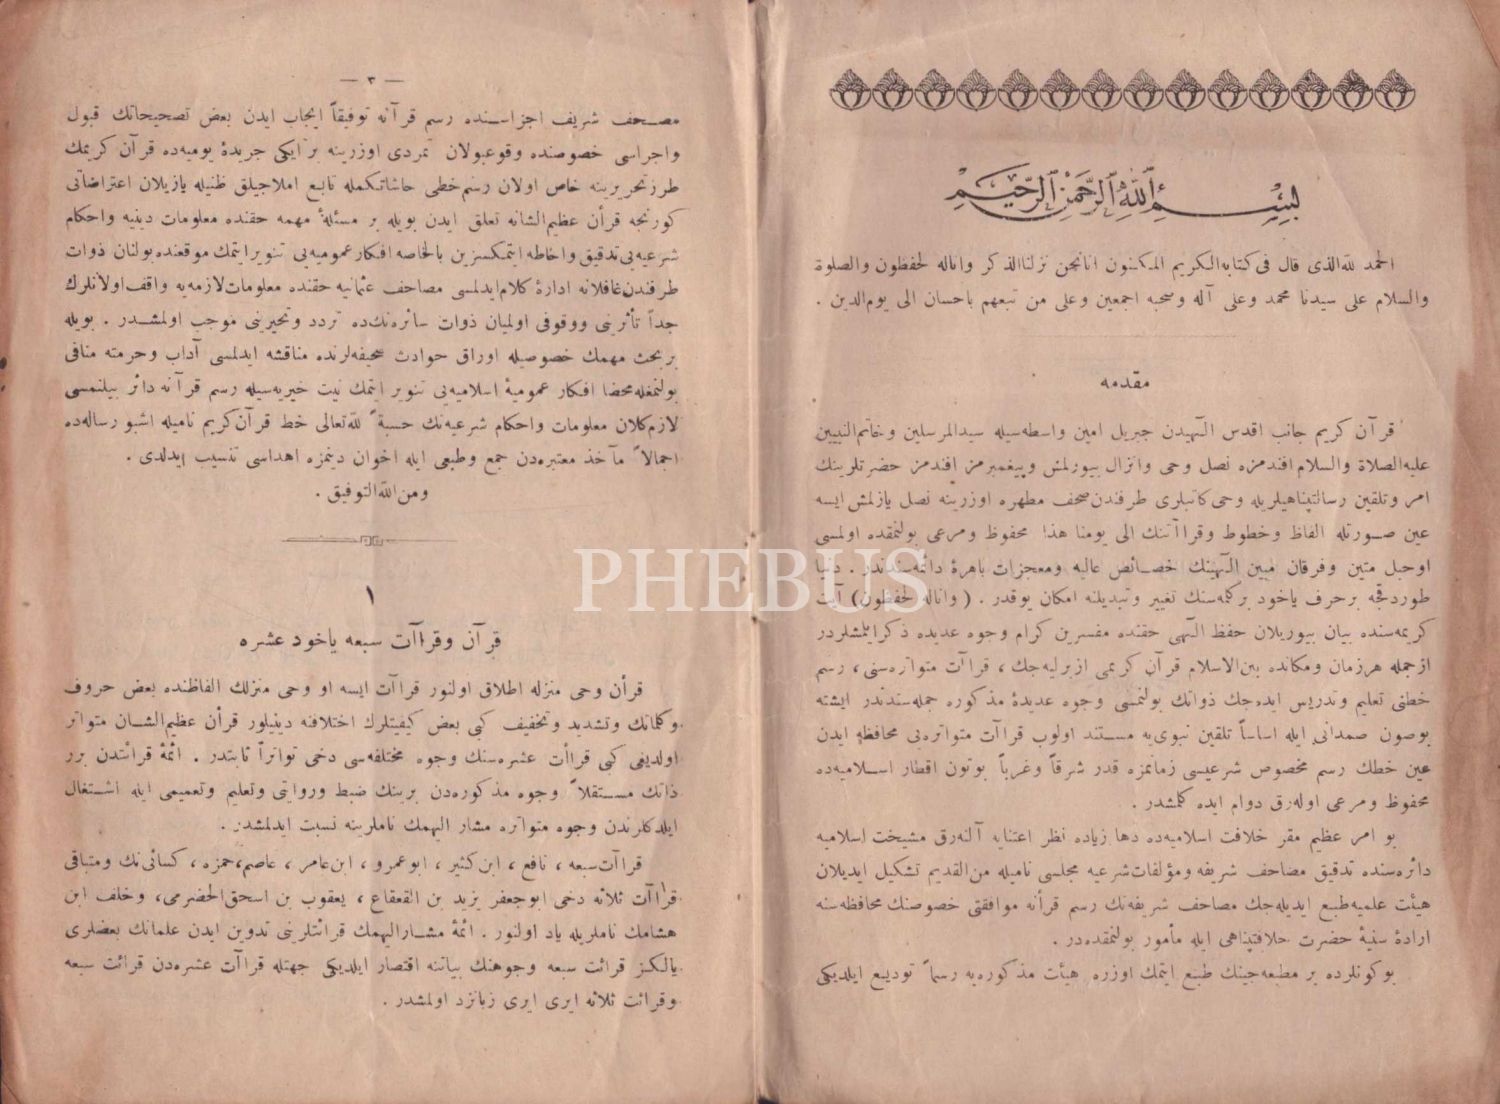 بسم الله الرحمن الرحيم
الحمد لله الذی قال فی كتابه الكريم المكنون انا نحن نزلنا الذكر وانا له لحفظون والصلوة
والسلام علی سيدنا محمد وعلی آله وصحبه اجمعين وعلی من تبعهم باحسان الی يوم الدين .
مقدمه
قرآن كريم جانب اقدس الٓهيدن جبريل امين واسطه‌سيله سيد المرسلين وخاتم النبيين
عليه الصلاة والسلام افندمزه نصل وحی وانزال بيورلمش وپيغمبرمز افندمز حضرتلرينك
امر وتلقين رسالتپناهيلريله وحی كاتبلری طرفندن صحف مطهره اوزرينه نصل يازلمش ايسه
عين صورتله الفاظ وخطوط وقراآتنك الی يومنا هذا محفوظ ومرعی بولنمقده اولمسی
اوحبل متين وفرقان مبين الٓهينك خصائص عاليه ومعجزات باهرهٔ دائمه‌سندندر . دنيا
طوردقجه بر حرف ياخود بر كلمه‌سنك تغيير وتبديلنه امكان يوقدر . ( وانا له لحفظون ) آيت
كريمه‌سنده بيان بيوريلان حفظ الٓهی حقنده مفسرين كرام وجوه عديده ذكر ايلمشلردر
ازجمله هر زمان ومكانده بين الاسلام قرآن كريمی ازبرليه‌جك ، قراآت متواتره‌سنی ، رسم
خطنی تعليم وتدريس ايده‌جك ذواتك بولنمسی وجوه عديدهٔ مذكوره جمله‌سندندر ايشته
بوصون صمدانی ايله اساساً تلقين نبوی‌يه مستند اولوب قراآت متواتره‌یی محافظه ايدن
عين خطك رسم مخصوص شرعيسی زمانمزه قدر شرقاً وغرباً بوتون اقطار اسلاميه‌ده
محفوظ ومرعی اوله‌رق دوام ايده كلمشدر .
بو امر عظيم مقر خلافت اسلاميه‌ده دها زياده نظر اعتنايه آلنه‌رق مشيخت اسلاميه
دائره‌سنده تدقيق مصاحف شريفه ومؤلفات شرعيه مجلسی ناميله من القديم تشكيل ايديلان
هيئت علميه طبع ايديله‌جك مصاحف شريفه‌نك رسم قرأنه موافقتی خصوصنك محافظه‌سنه
ارادهٔ سنيهٔ حضرت خلافتپناهی ايله مأمور بولنمقده‌در .
بو كونلرده بر مطبعه‌جينك طبع ايتمك اوزره هيئت مذكوره‌يه رسماً توديع ايلديكی
— ٣ —
مصحف شريف اجزاسنده رسم قرآنه توفيقاً ايجاب ايدن بعض تصحيحاتك قبول
واجراسی خصوصنده وقوعبولان تمردی اوزرينه بر ايكی جريدهٔ يوميه‌ده قرآن كريمك
طرز تحريرينه خاص اولان رسم خطی حاشا تكمله تابع املاجيلق ظنيله يازيلان اعتراضاتی
كورنجه قرأن عظيم الشانه تعلق ايدن بويله بر مسئلهٔ مهمه حقنده معلومات دينيه واحكام
شرعيه‌یی تدقيق واحاطه ايتمكسزين بالخاصه افكار عموميه‌یی تنوير ايتمك موقعنده بولنان ذوات
طرفندن غافلانه ادارهٔ كلام ايدلمسی مصاحف عثمانيه حقنده معلومات لازمه‌يه واقف اولانلرك
جداً تأثرينی ووقوفی اولميان ذوات سائره‌نك‌ده تردد وتحيرينی موجب اولمشدر . بويله
بر بحث مهمك خصوصيله اوراق حوادث صحيفه‌لرنده مناقشه ايدلمسی آداب وحرمته منافی
بولنمغله محضا افكار عموميهٔ اسلاميه‌یی تنوير ايتمك نيت خيريه‌سيله رسم قرآنه دائر بيلنمسی
لازم‌كلان معلومات واحكام شرعيه‌نك حسبةً لله تعالی خط قرآن كريم ناميله اشبو رساله‌ده
اجمالاً مآخذ معتبره‌دن جمع وطبعی ايله اخوان دينمزه اهداسی تنسيب ايدلدی .
ومن الله التوفيق .
١
قرآن وقراآت سبعه ياخود عشره
قرأن وحی منزله اطلاق اولنور قراآت ايسه او وحی منزلك الفاظنده بعض حروف
وكلماتك وتشديد وتخفيف كبی بعض كيفيتلرك اختلافنه دينيلور قرأن عظيم الشان متواتر
اولديغی كبی قراأت عشره‌سنك وجوه مختلفه‌سی دخی تواتراً ثابتدر . ائمهٔ قرائتدن برر
ذاتك مستقلاً وجوه مذكوره‌دن برينك ضبط وروايتی وتعليم وتعميمی ايله اشتغال
ايلدكلرندن وجوه متواتره مشار اليهمك ناملرينه نسبت ايدلمشدر .
قراآت سبعه ، نافع ، ابن كثير ، ابو عمرو ، ابن عامر ، عاصم ، حمزه ، كسائی‌نك ومتباقی
قراآت ثلاثه دخی ابو جعفر يزيد بن القعقاع ، يعقوب بن اسحق الحضرمی ، وخلف ابن
هشامك ناملريله ياد اولنور . ائمهٔ مشار اليهمك قرائتلرينی تدوين ايدن علمانك بعضلری
يالكز قرائت سبعه وجوهنك بياننه اقتصار ايلديكی جهتله قراآت عشره‌دن قرائت سبعه
وقرائت ثلاثه ايری ايری زبانزد اولمشدر .
PHEBUS